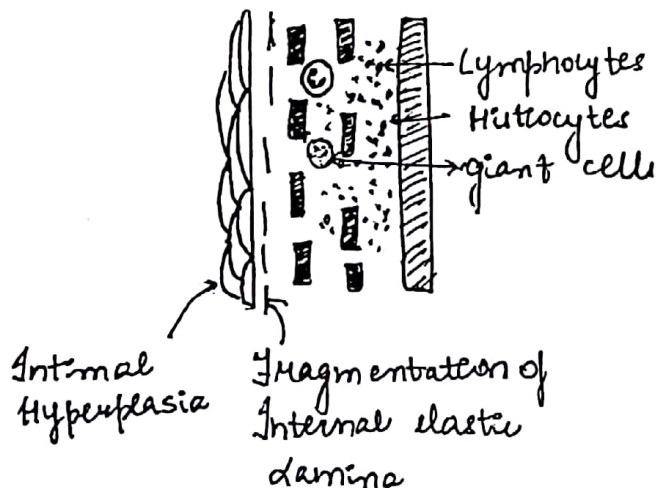 Lymphocytes
Histiocytes
giant cells
Intimal
Hyperplasia
Fragmentation of
Internal elastic
Lamina